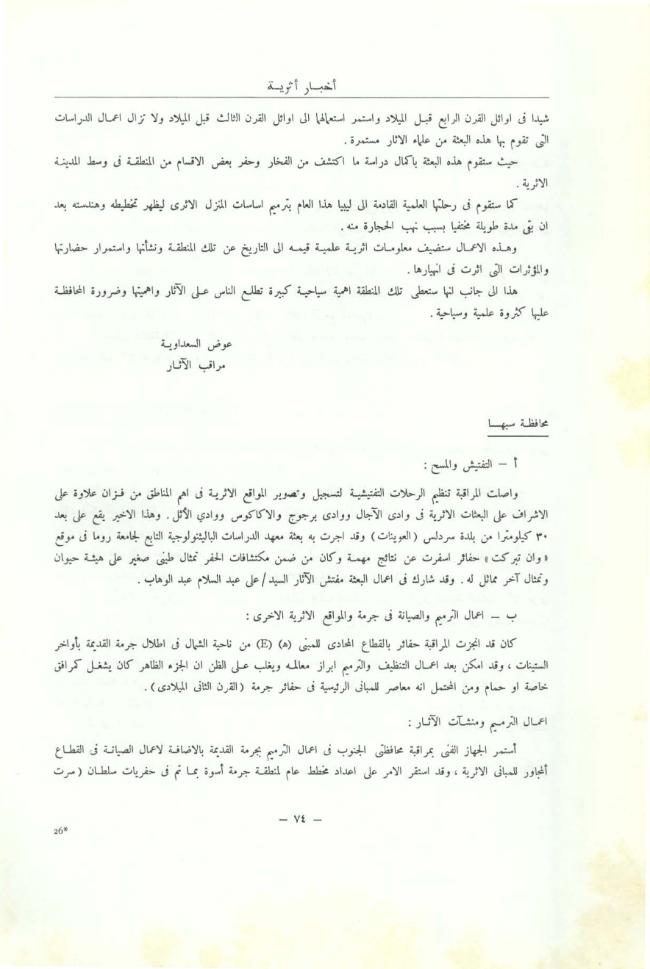 أخبـار أثريـة
شيدا فى اوائل القرن الرابع قبـل الميلاد واستمر استعمالهما الى اوائل القرن الثالث قبل الميلاد ولا تزال اعمال الدراسات
التى تقوم بها هذه البعثة من علماء الاثار مستمرة .
حيث ستقوم هذه البعثة باكمال دراسة ما اكتشف من الفخار وحفر بعض الاقسام من المنطقـة فى وسط المدينـة
الاثرية .
كما ستقوم فى رحلتها العلمية القادمة الى ليبيا هذا العام بترميم اساسات المنزل الاثرى ليظهر تخطيطه وهندسته بعد
ان بقى مدة طويلة مختفيا بسبب نهب الحجارة منه .
وهـذه الاعمال ستضيف معلومـات اثرية علمية قيمـه الى التاريخ عن تلك المنطقـة ونشأتها واستمرار حضارتها
والمؤثرات التى اثرت فى انهيارها .
هذا الى جانب انها ستعطى تلك المنطقة اهمية سياحيـة كبيرة تطلـع الناس علـى الآثار واهميتها وضرورة المحافظـة
عليها كثروة علمية وسياحية .
عوض السعداويـة
مراقب الآثـار
محافظـة سبهـا
أ – التفتيش والمسح :
واصلت المراقبة تنظيم الرحلات التفتيشيـة لتسجيل وتصوير المواقع الاثريـة فى اهم المناطق من فـزان علاوة على
الاشراف على البعثات الاثرية فى وادى الآجال ووادى برجوج والاكاكوس ووادي الأثل . وهذا الاخير يقع على بعد
٣٠ كيلومترا من بلدة سردلس (العوينات) وقد اجرت به بعثة معهد الدراسات الباليثنولوجية التابع لجامعة روما فى موقع
« وان تبركت » حفائر اسفرت عن نتائج مهمـة وكان من ضمن مكتشافات الحفر تمثال طينى صغير على هيئـة حيوان
وتمثال آخر مماثل له . وقد شارك فى اعمال البعثة مفتش الآثار السيد/على عبد السلام عبد الوهاب .
ب – اعمال الترميم والصيانة فى جرمة والمواقع الاثرية الاخرى :
كان قد انجزت المراقبة حفائر بالقطاع المحادى للمبنى (ه) (E) من ناحية الشمال فى اطلال جرمة القديمة بأواخر
الستينات ، وقد امكن بعد اعمـال التنظيف والترميم ابراز معالمـه ويغلب علـى الظن ان الجزء الظاهر كان يشغـل كمرافق
خاصة او حمام ومن المحتمل انه معاصر للمبانى الرئيسية فى حفائر جرمة (القرن الثانى الميلادى) .
اعمال الترميـم ومنشـآت الآثـار :
أستمر الجهاز الفنى بمراقبة محافظتى الجنوب فى اعمال الترميم بجرمة القديمة بالاضافـة لاعمال الصيانـة فى القطـاع
المجاور للمبانى الاثرية ، وقد استقر الامر على اعداد مخطط عام لمنطقـة جرمة أسوة بمـا تم فى حفريات سلطـان (سرت
– ٧٤ –
26*